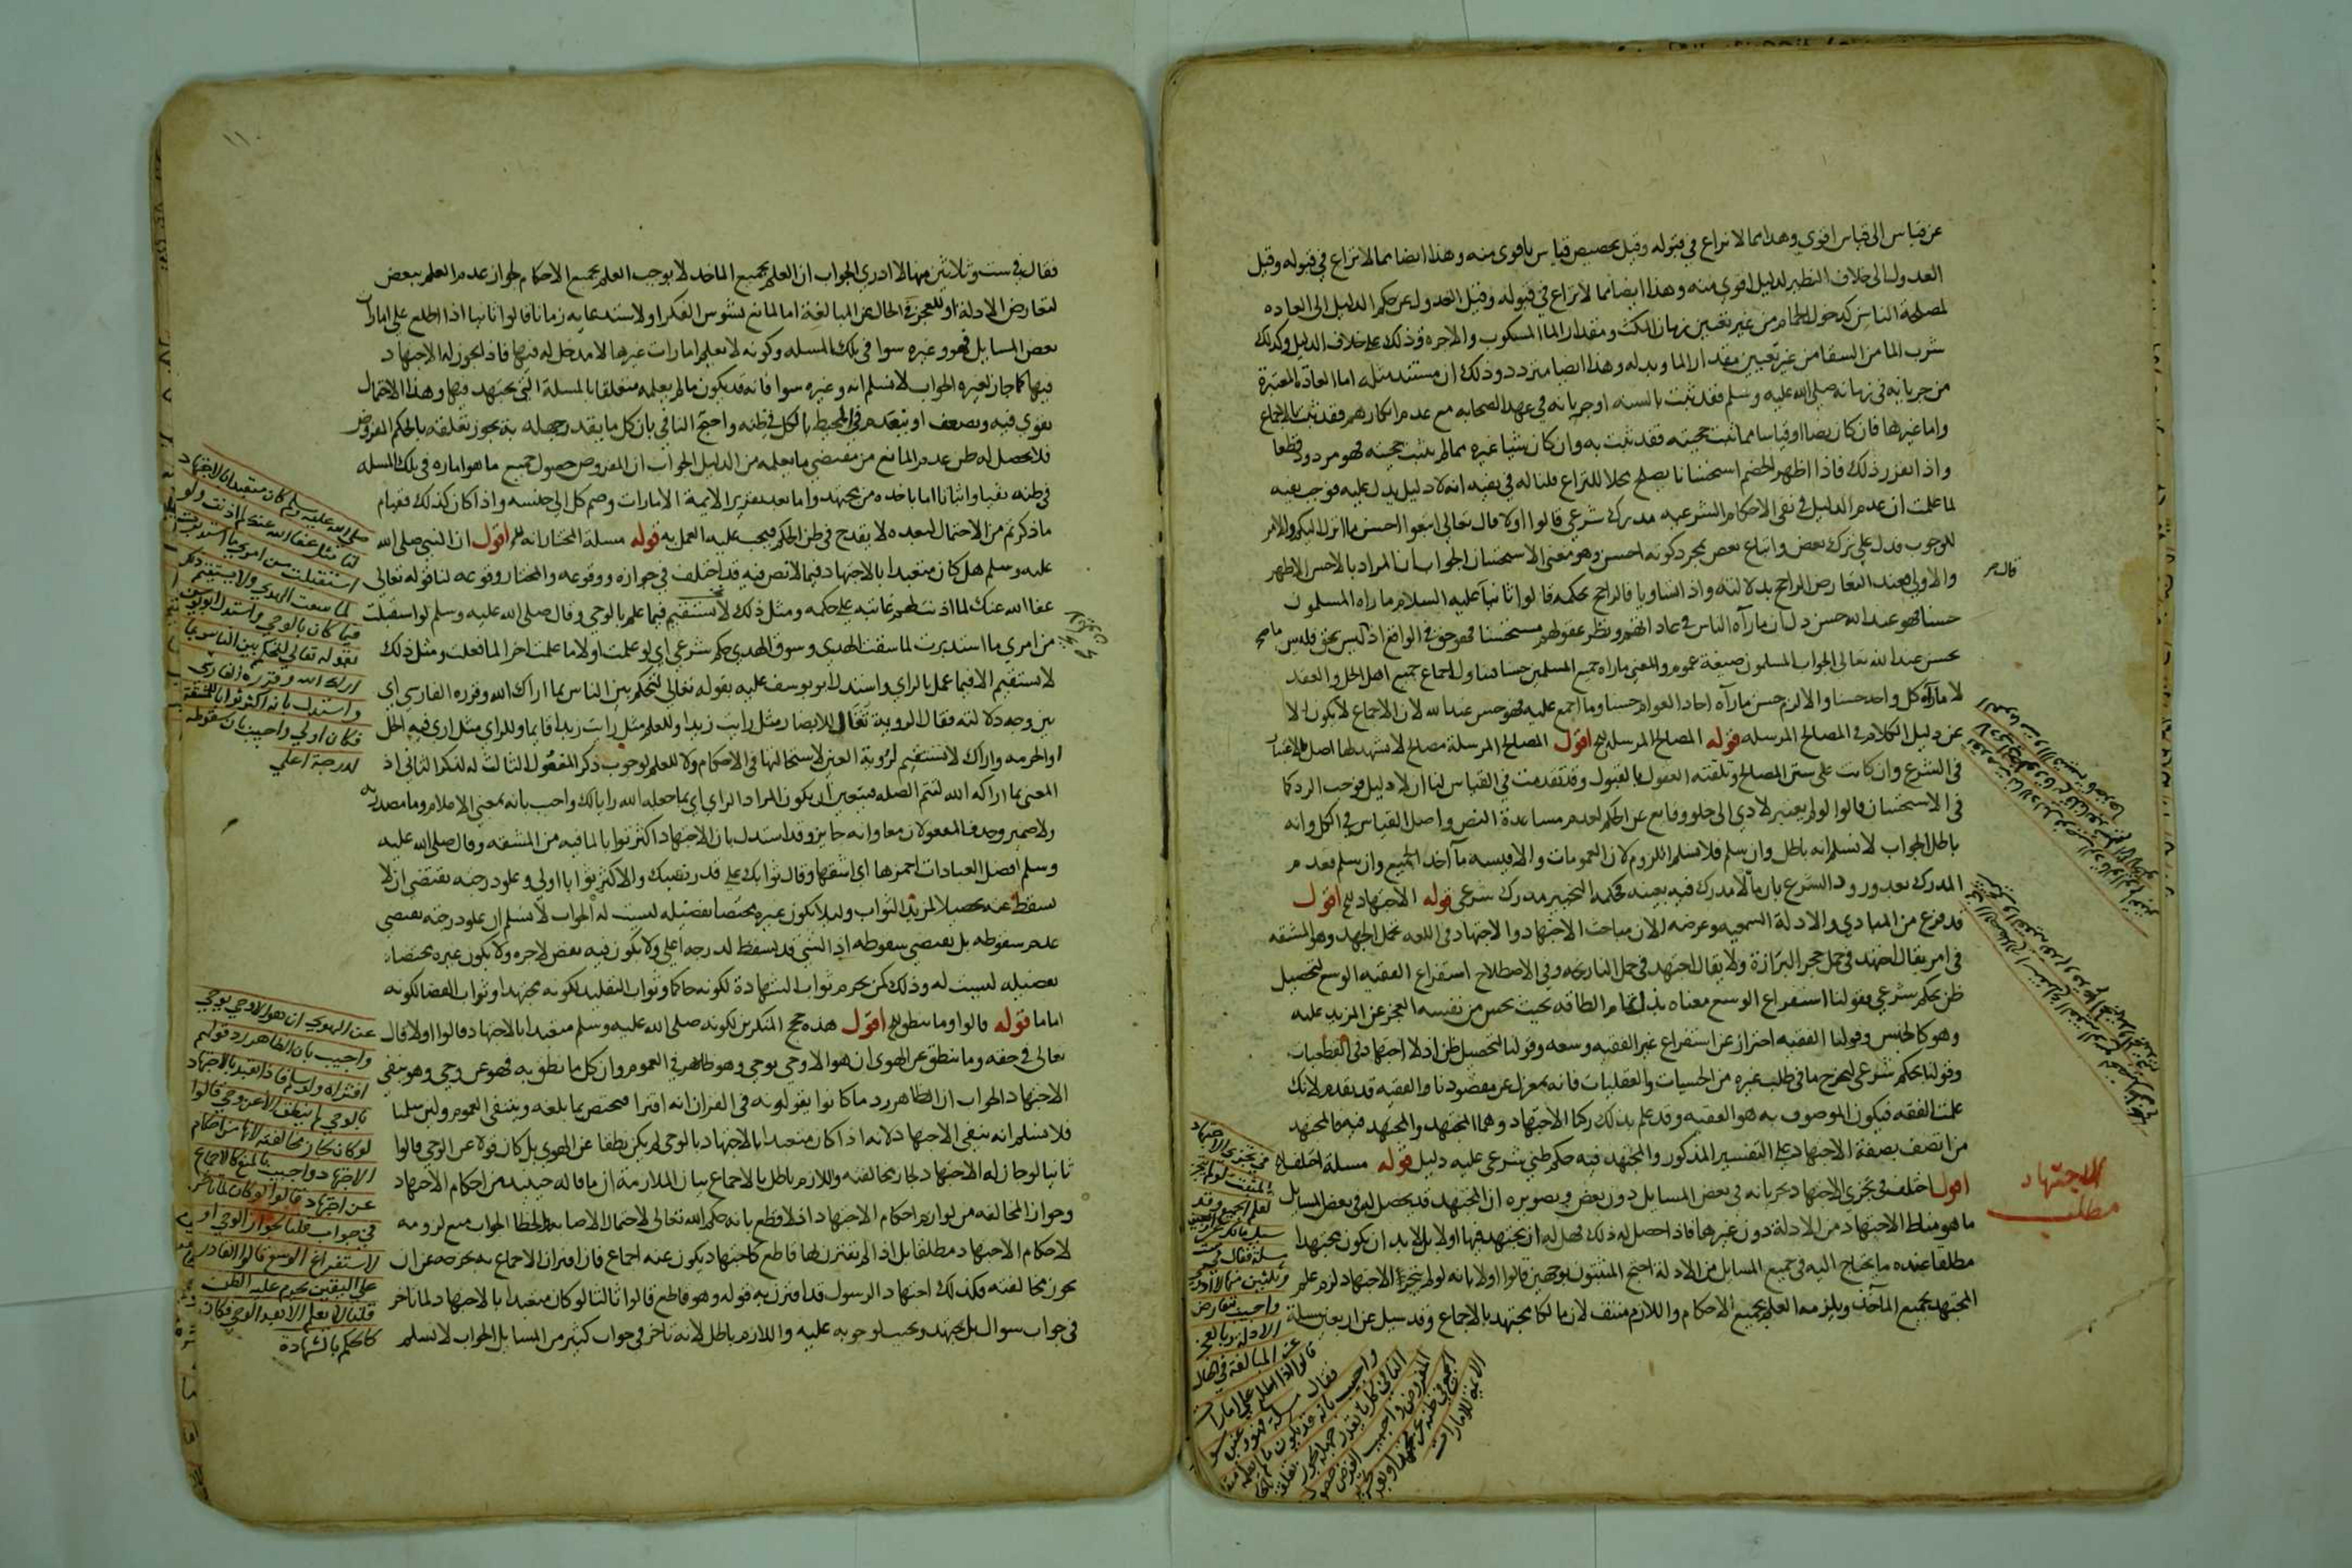 عن قياس الى قياس اقوي وهذا مما لا نزاع في قبوله وقيل تخصيص قياس باقوى منه وهذا ايضا مما لا نزاع في قبوله وقيل
العدول الى خلاف النظير لدليل اقوي منه وهذا ايضا مما لا نزاع في قبوله وقيل العدول عن حكم الدليل الى العاده
لمصلحة الناس كدخول الحمام من غير تعيين زمان المكث ومقدار الما المسكوب والاجره وذلك على خلاف الدليل وكذلك
شرب الما من السقا من غير تعيين مقدار الما وبدله وهذا ايضا متردد وذلك ان مستند مثله اما العادة المعتبرة
من جريانه في زمانه صلى الله عليه وسلم فقد ثبت بالسنه او جريانه في عهد الصحابه مع عدم انكارهم فقد ثبت بالاجماع
واما غيرها فان كان نصا او قياسا مما ثبت حجيته فقد ثبت به وان كان شيا غيره مما لم يثبت حجيته فهو مردود قطعا
واذا تقرر ذلك فاذا اظهر الخصم استحسانا يصلح محلا للنزاع قلنا له في نفيه انه لا دليل يدل عليه فوجب نفيه
لما علمت ان عدم الدليل في نفي الاحكام الشرعيه مدرك شرعي قالوا اولا قال تعالى اتبعوا احسن ما انزل اليكم والامر
للوجوب فدل على ترك بعض واتباع بعض بمجرد كونه احسن وهو معنى الاستحسان الجواب ان المراد بالاحسن الاظهر
والاولى فعند التعارض الراجح بدلالته واذا تساويا فالراجح بحكمه قالوا ثانيا عليه السلام ما راه المسلمون
حسنا فهو عند الله حسن دل ان مارآه الناس في عاداتهم ونظر عقولهم مستحسنا فهو حق في الواقع اذ ليس بحق فليس
بحسن عند الله تعالى الجواب المسلمون صيغة عموم والمعنى ماراه جميع المسلمين حسنا فيتناول اجماع جميع اهل الحل والعقد
لا مارآه كل واحد حسنا والا لزم حسن مارآه احاد العوام حسنا وما اجمع عليه فهو حسن عند الله لان الاجماع لا يكون الا
عن دليل الكلام في المصالح المرسله قوله المصالح المرسله الخ اقول المصالح المرسلة مصالح لا يشهد لها اصل بالاعتبار
في الشرع وان كانت على سنن المصالح وتلقته العقول بالقبول وقد تقدمت في القياس لنا ان لا دليل فوجب الرد كما
في الاستحسان قالوا لو لم يعتبر لادي الى خلو وقايع عن الحكم لعدم مساعدة النص واصل القياس في الكل وانه
باطل الجواب لا نسلم انه باطل وان سلم فلا نسلم اللزوم لان العمومات والاقيسه مآخذ الجميع وان سلم فعدم
المدرك بعد ورود الشرع بان ما لا مدرك فيه بعينه فحكمه التخيير مدرك شرعي قوله الاجتهاد الخ اقول
قد فرغ من المبادي والادلة السمعيه وغرضه الان مباحث الاجتهاد والاجتهاد في اللغه تحمل الجهد وهو المشقه
في امر يقال اجتهد في حمل حجر البزازة ولا يقال اجتهد في حمل النارنجه وفي الاصطلاح استفراغ الفقيه الوسع لتحصيل
ظن بحكم شرعي فقولنا استفراغ الوسع معناه بذل تمام الطاقه بحيث يحس من نفسه العجز عن المزيد عليه
وهو كالجنس وقولنا الفقيه احتراز عن استفراغ غير الفقيه وسعه وقولنا لتحصيل ظن اذ لا اجتهاد في القطعيات
وقولنا بحكم شرعي ليخرج ما في طلب غيره من الحسيات والعقليات فانه بمعزل عن مقصودنا والفقيه قد تقدم لانك
علمت الفقه فيكون الموصوف به هو الفقيه وقد علم بذلك ركنا الاجتهاد وهما المجتهد والمجتهد فيه فالمجتهد
من اتصف بصفة الاجتهاد على التفسير المذكور والمجتهد فيه حكم ظني شرعي عليه دليل قوله مسلة اختلف الخ
اقول اختلف في تجزي الاجتهاد بجريانه في بعض المسايل دون بعض وتصويره ان المجتهد قد يحصل له في بعض المسايل
ما هو مناط الاجتهاد من الادلة دون غيرها فاذا حصل له ذلك فهل له ان يجتهد فيها او لا بل لا بد ان يكون مجتهدا
مطلقا عنده ما يحتاج اليه في جميع المسايل من الادلة احتج المثبتون بوجهين قالوا اولا بانه لو لم يتجزا الاجتهاد لزم علم
المجتهد بجميع المآخذ ويلزمه العلم بجميع الاحكام واللازم منتف لان مالكا مجتهد بالاجماع وقد سيل عن اربعين مسلة
قال مر
الاجتهاد
مطلب
فقال في ست وثلاثين منها لا ادري الجواب ان العلم بجميع الماخذ لا يوجب العلم بجميع الاحكام لجواز عدم العلم ببعض
لتعارض الادلة او للعجز في الحال عن المبالغة اما لمانع يشوش الفكر او لاستدعايه زمانا قالوا ثانيا اذا اطلع على امارات
بعض المسايل فهو وغيره سوا في تلك المسله وكونه لا يعلم امارات غيرها لا مدخل له فيها فاذا يجوز له الاجتهاد
فيها كما جاز لغيره الجواب لا نسلم انه وغيره سوا فانه قد يكون ما لم يعلمه متعلقا بالمسلة التي يجتهد فيها وهذا الاحتمال
يقوي فيه ويضعف او ينعدم في المحيط بالكل في ظنه واحتج النافي بان كل ما يقدر جهله به يجوز تعلقه بالحكم المفروض
فلا يحصل له ظن عدم المانع من مقتضي ما يعلمه من الدليل الجواب ان المفروض حصول جميع ما هو اماره في تلك المسله
في ظنه نفيا واثباتا اما باخذه من مجتهد واما بعد تقرير الايمة الامارات وضم كل الى جنسه واذا كان كذلك فقيام
ماذكرتم من الاحتمال لبعده لا يقدح في ظن الحكم فيجب عليه العمل به قوله مسلة المختار انه الخ اقول ان النبي صلى الله
عليه وسلم هل كان متعبدا بالاجتهاد فيما لا نص فيه قد اختلف في جوازه ووقوعه والمختار وقوعه لنا قوله تعالى
عفا الله عنك لما اذنت لهم عاتبه على حكمه ومثل ذلك لا يستقيم فيما علم بالوحي وقال صلى الله عليه وسلم لو استقبلت
من امري ما استدبرت لما سقت الهدي وسوق الهدي حكم شرعي اي لو علمت اولا ما علمت اخرا لما فعلت ومثل ذلك
لا يستقيم الا فيما عمل بالراي واستدل ابو يوسف عليه بقوله تعالى لتحكم بين الناس بما اراك الله وقرره الفارسي اي
بين وجه دلالته فقال الروية تقال للابصار مثل رايت زيدا وللعلم مثل رايت زيدا قايما وللراي مثل اري فيه الحل
او الحرمه واراك لا يستقيم لروية العين لاستحالتها في الاحكام ولا للعلم لوجوب ذكر المفعول الثالث له لذكر الثاني اذ
المعنى بما اراكه الله لتتم الصله فيتعين ان يكون المراد الراي اي بما جعله الله رايا لك واجيب بانه بمعنى الاعلام وما مصدريه
ولا ضمير وحذف المفعولان معا وانه جايز وقد استدل بان الاجتهاد اكثر ثوابا لما فيه من المشقه وقال صلى الله عليه
وسلم افضل العبادات احمزها اي اشقها وقال ثوابك على قدر نصبك والاكثر ثوابا اولي وعلو درجته يقتضي ان لا
يسقط عنه تحصيلا لمزيد الثواب وليلا يكون غيره مختصا بفضيله ليست له الجواب لا نسلم ان علو درجته يقتضي
عدم سقوطه بل يقتضي سقوطه اذ الشي قد يسقط لدرجه اعلى ولا يكون فيه نقص لاجره ولا يكون غيره مختصا
بفضيله ليست له وذلك كمن يحرم ثواب الشهادة لكونه حاكما وثواب التقليد لكونه مجتهدا وثواب القضا لكونه
اماما قوله قالوا وما ينطق الخ اقول هذه حجج المنكرين لكونه صلى الله عليه وسلم متعبدا بالاجتهاد قالوا اولا قال
تعالى في حقه وما ينطق عن الهوى ان هو الا وحي يوحي وهو ظاهر في العموم وان كل ما ينطق به فهو عن وحي وهو ينفي
الاجتهاد الجواب ان الظاهر رد ما كانوا يقولونه في القران انه افترا فيختص بما بلغه وينتفي العموم ولين سلمنا
فلا نسلم انه ينفي الاجتهاد لانه اذا كان متعبدا بالاجتهاد بالوحي لم يكن نطقا عن الهوي بل كان قولا عن الوحي قالوا
ثانيا لو جاز له الاجتهاد لجاز مخالفته واللازم باطل بالاجماع بيان الملازمة ان ما قاله حينيذ من احكام الاجتهاد
وجواز المخالفه من لوازم احكام الاجتهاد اذ لا قطع بانه حكم الله تعالى لاحتمال الاصابه والخطا الجواب منع لزومه
لاحكام الاجتهاد مطلقا بل اذا لم يقترن بها قاطع كاجتهاد يكون عنه اجماع فان اقتران الاجماع به يخرجه عن ان
يجوز مخالفته فكذلك اجتهاد الرسول قد اقترن به قوله وهو قاطع قالوا ثالثا لو كان متعبدا بالاجتهاد لما تاخر
في جواب سوال بل يجتهد ويجيب لوجوبه عليه واللازم باطل لانه تاخر في جواب كثير من المسايل الجواب لا نسلم
صلى الله عليه وسلم كان متعبدا بالاجتهاد
لنا مثل عفا الله عنك لم اذنت ولو
استقبلت من امري ما استدبرت
لما سقت الهدي ولا يستقيم ذلك
فيما كان بالوحي واستدل ابو يوسف
بقوله تعالى لتحكم بين الناس بما
اراك الله وقرره الفارسي
واستدل بانه اكثر ثوابا للمشقة
فكان اولي واجيب بان سقوطه
لدرجة اعلي
عن الهوي ان هو الا وحي يوحي
واجيب بان الظاهر رد قولهم
افتراه ولو سلم فاذا تعبد بالاجتهاد
بالوحي لم ينطق الا عن وحي قالوا
لو كان لجاز مخالفته لانها من احكام
الاجتهاد واجيب بالمنع كالاجماع
عن اجتهاد قالوا لو كان لما تاخر
في جواب قلنا لجواز الوحي او
لاستفراغ الوسع قالوا القادر
على اليقين يحرم عليه الظن
قلنا لا يعلم الا بعد الوحي فكان
كالحكم بالشهادة